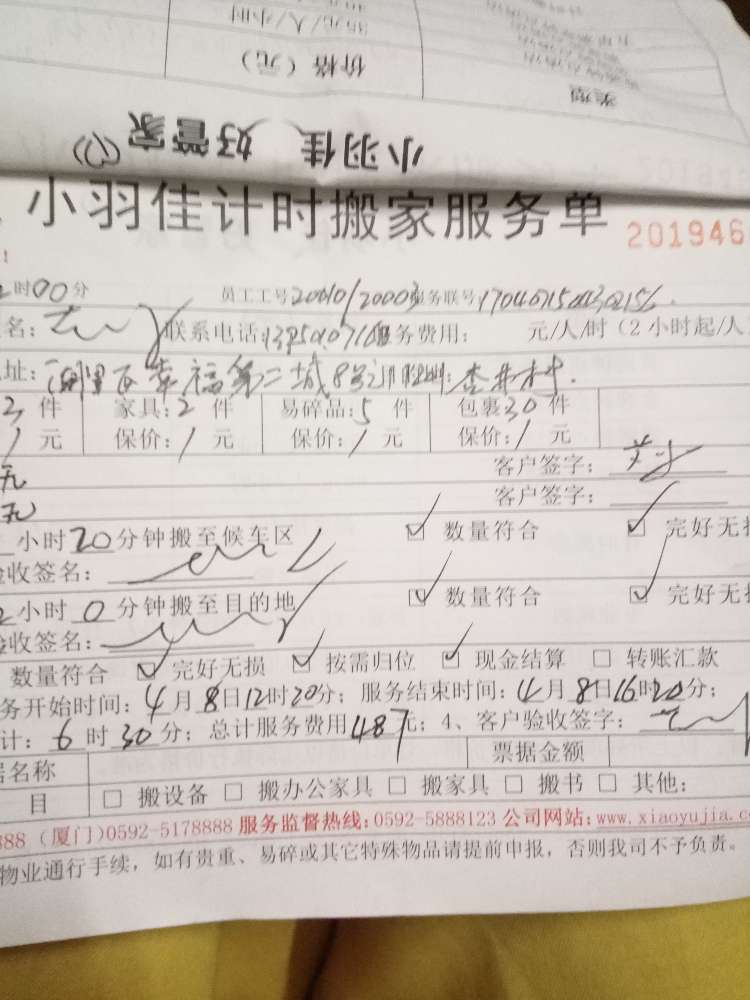 35元/人/小时
价格（元）
类型
小羽佳 好管家
小羽佳计时搬家服务单 201946
时00分 员工工号 服务联号
名: 联系电话: 服务费用: 元/人/时（2小时起/人
址: 幸福第二城
3件 家具:2件 易碎品:5件 包裹30件
1元 保价:1元 保价:1元 保价:1元
无 客户签字:
无 客户签字:
小时20分钟搬至候车区 ☑ 数量符合 ☑ 完好无损
验收签名:
2小时0分钟搬至目的地 ☑ 数量符合 ☑ 完好无损
验收签名:
数量符合 ☑ 完好无损 ☑ 按需归位 ☑ 现金结算 □ 转账汇款
务开始时间: 4月8日12时20分; 服务结束时间: 4月8日16时20分;
计: 6时30分; 总计服务费用487元; 4、客户验收签字:
据名称 票据金额
目 □ 搬设备 □ 搬办公家具 □ 搬家具 □ 搬书 □ 其他:
888 (厦门)0592-5178888 服务监督热线:0592-5888123 公司网站:www.xiaoyujia.c
物业通行手续，如有贵重、易碎或其它特殊物品请提前申报，否则我司不予负责。